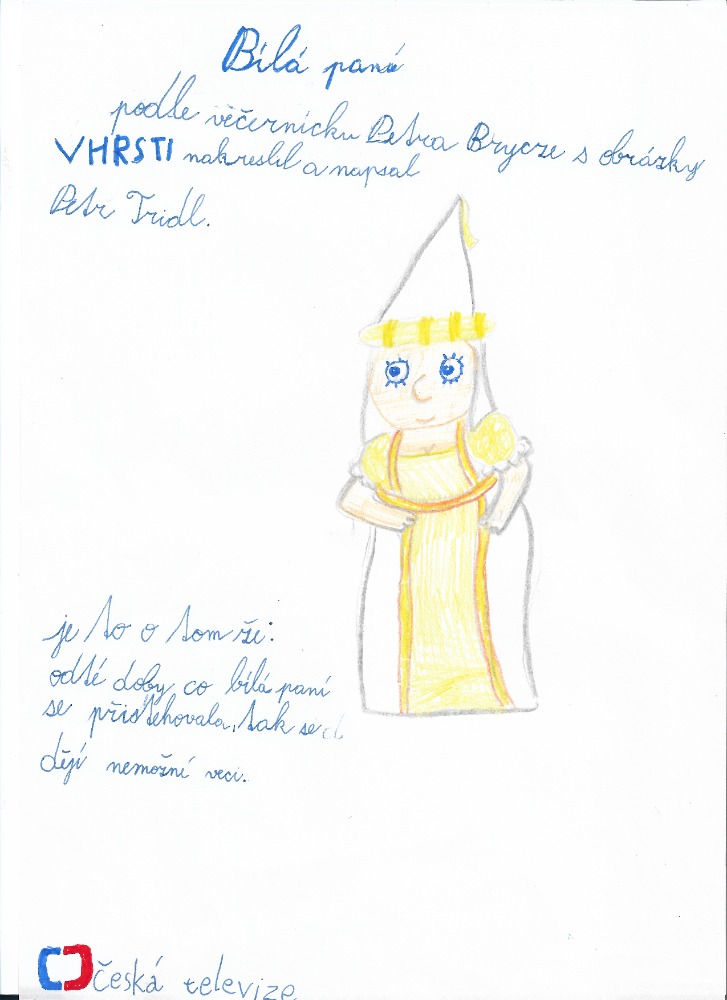 Bílá paní
podle věčerníčku Petra Brycze s obrázky
VHRSTI nakreslil a napsal
Petr Tridl.
je to o tom že:
odté doby co bílá paní
se přistěhovala, tak se
ději nemožní veci.
česká televize